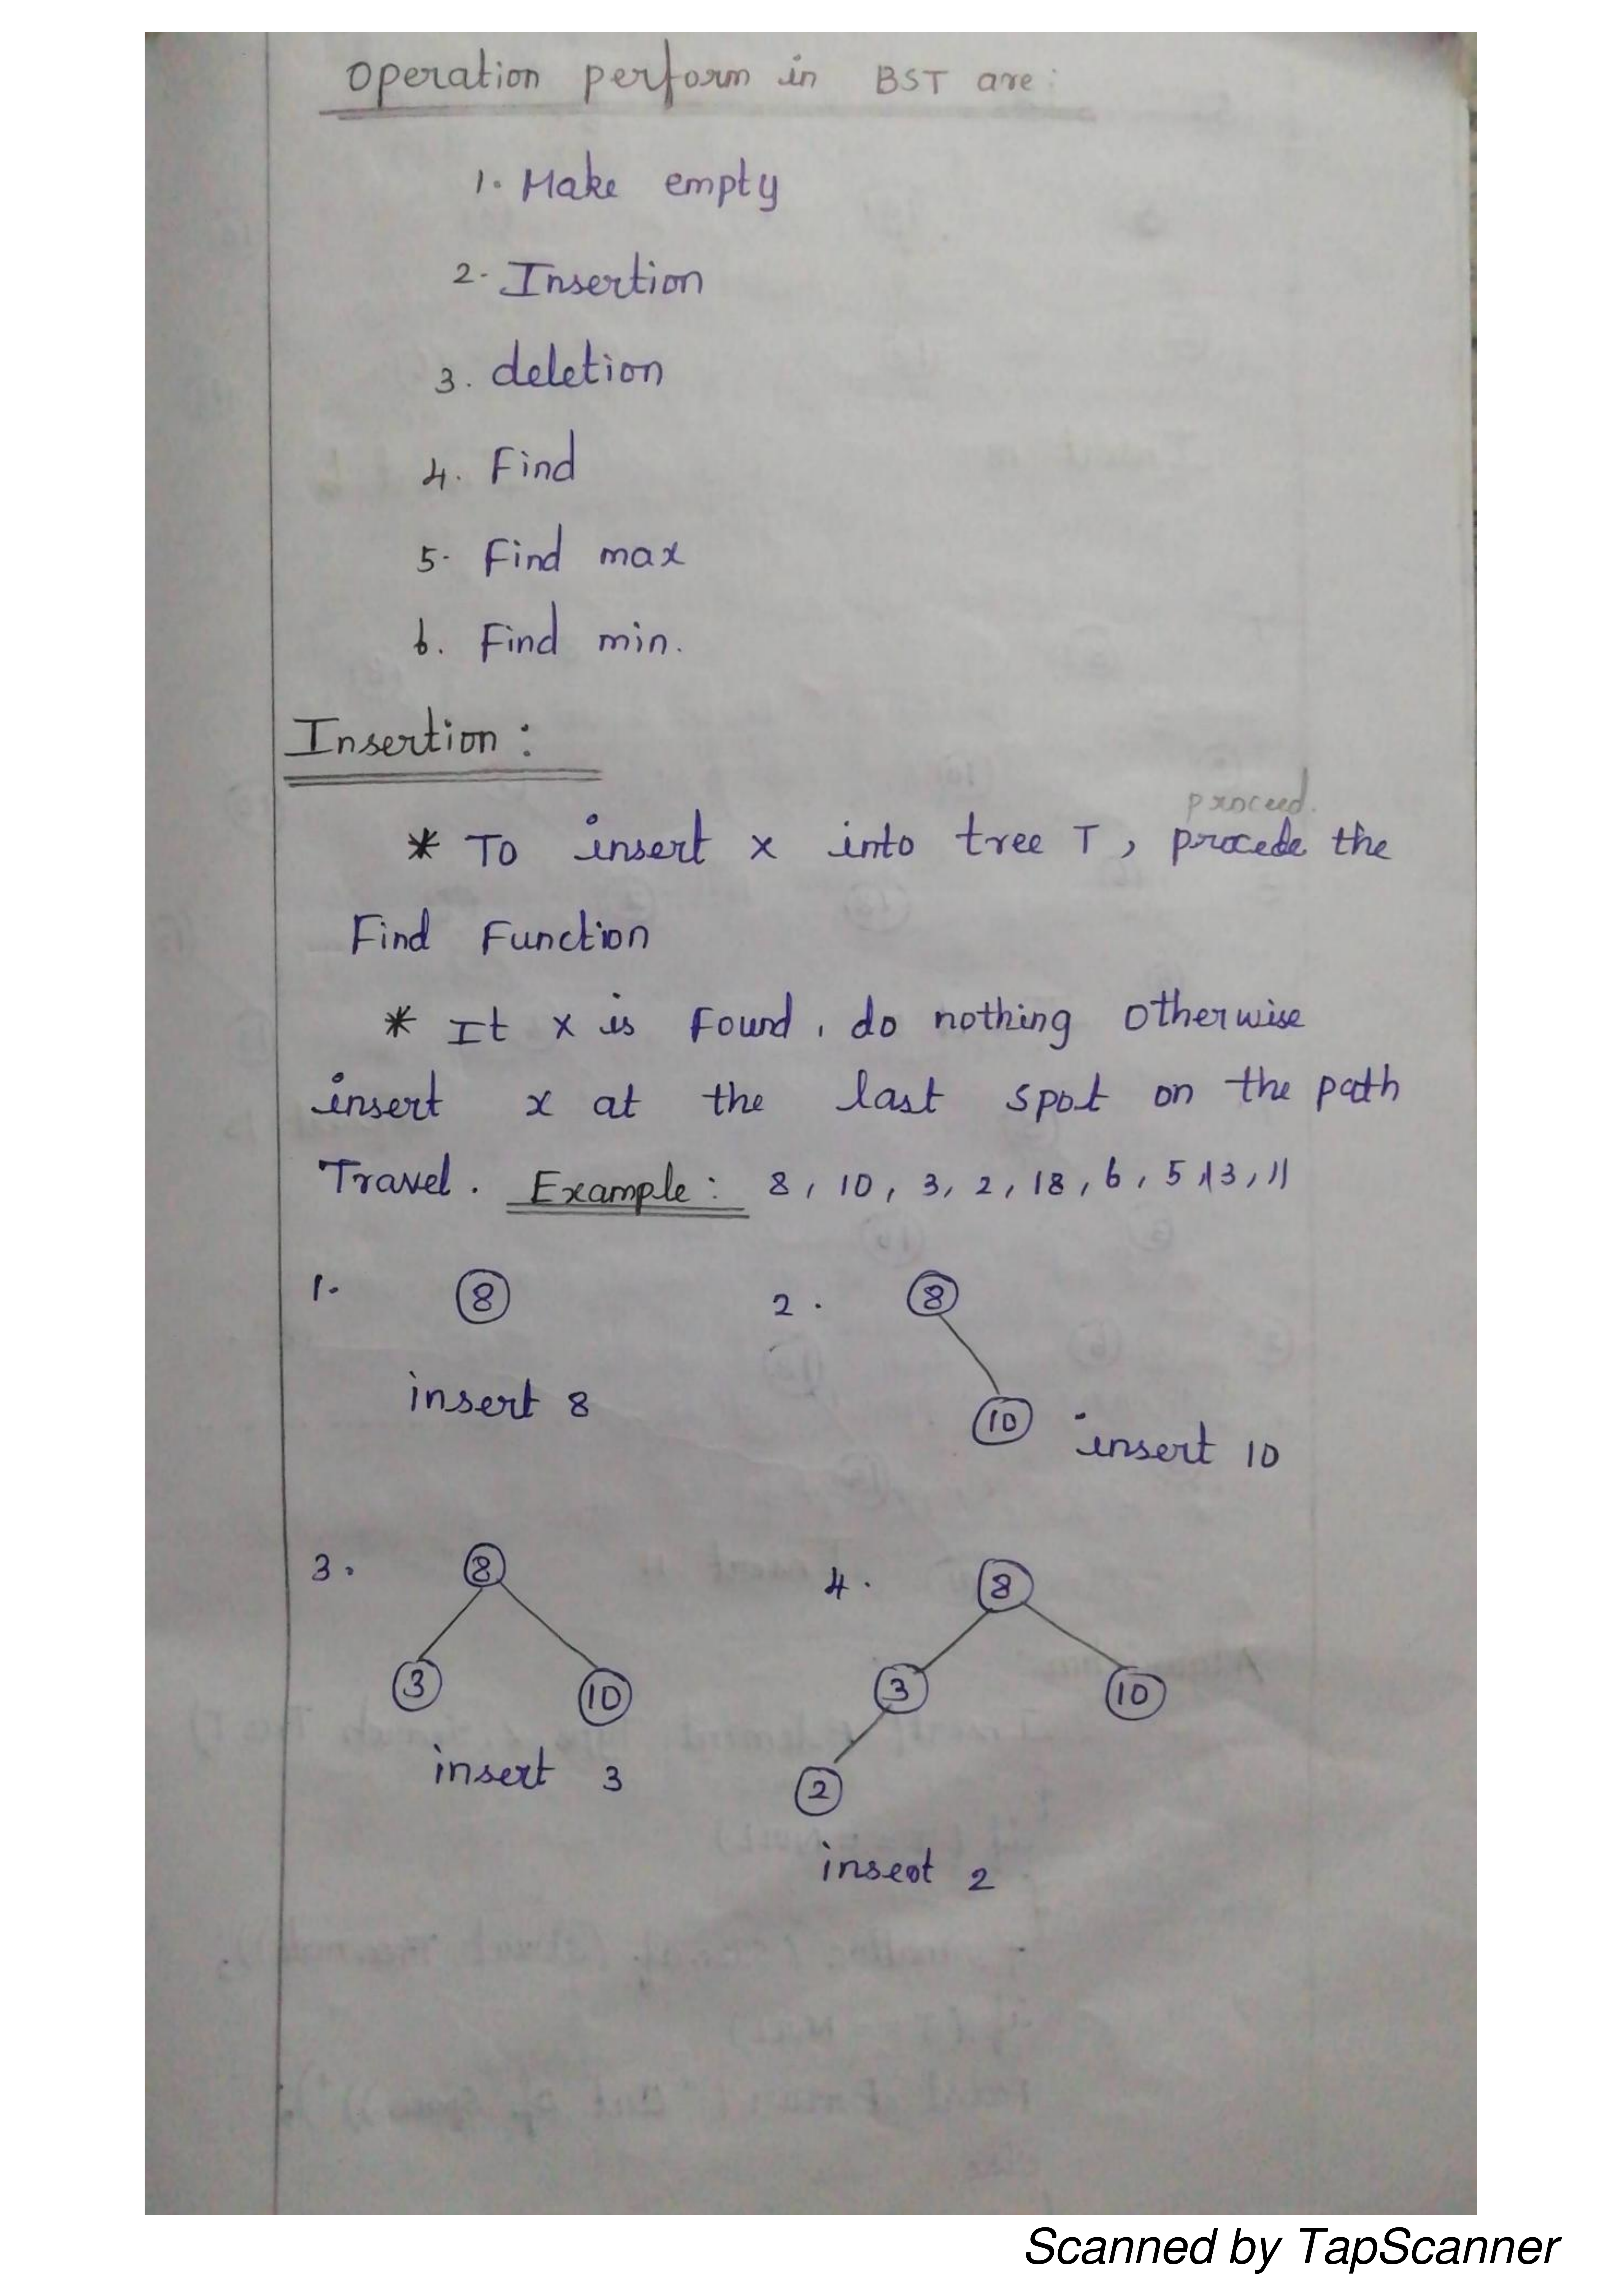 Operation perform in BST are:
1. Make empty
2. Insertion
3. deletion
4. Find
5. Find max
6. Find min.
Insertion:
proceed.
* To insert x into tree T, procede the
Find Function
* It x is Found, do nothing otherwise
insert x at the last spot on the path
Travel. Example: 8, 10, 3, 2, 18, 6, 5, 13, 11
1. 8
insert 8
2. 8
10 insert 10
3. 8
3 10
insert 3
4. 8
3 10
2
insert 2
Scanned by TapScanner